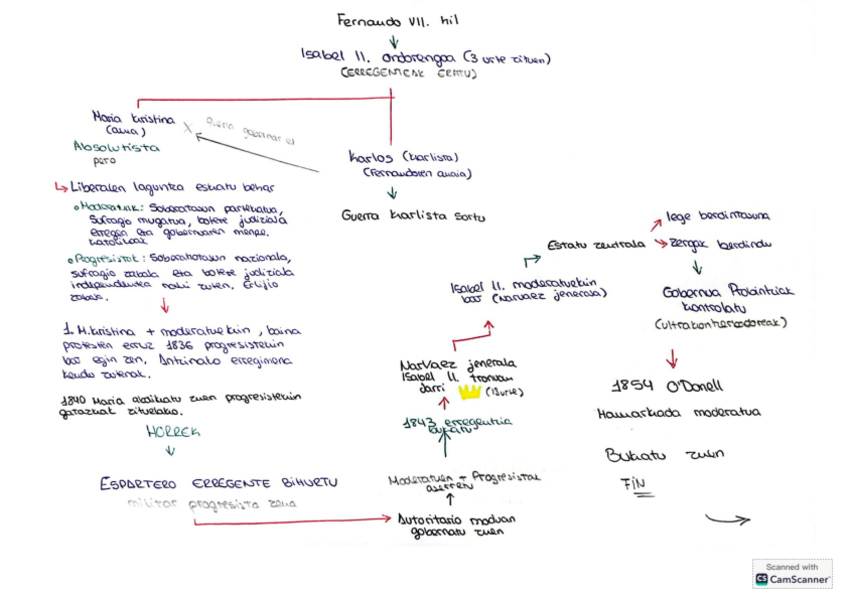 Fernando VII. hil
Isabel II. ondorengoa (3 urte zituen)
(ERREGENTEAK BEHAR)
Maria kristina
(ama)
Absolutista
pero
X
Karlos (karlista)
(Fernandoren anaia)
Guerra karlista sortu
Liberalen laguntza eskatu behar
Moderatuak: Soberotasun partekatua,
Sufragio mugatua, botere judiziala
erregea eta gobernuaren menpe.
katolikoak
Progresistak: Soberahotasun nazionala,
sufragio zabala eta botere judiziala
independentea nahi zuten. Erlijio
zabala.
1. M.kristina + moderatuekin, baina
protesten erruz 1836 progresistekin
bat egin zen. Antzinako erregimena
kendu zutenak.
1840 Maria abdikatu zuen progresistekin
gatazkak zituelako.
HORREK
ESPARTERO ERREGENTE BIHURTU
militar progresista zena
Autoritario moduan
gobernatu zuen
Moderatuen + Progresistak
aserretu
1843 erregentzia
bukatu
Narvaez jenerala
Isabel II. tronuan
jarri (13urte)
Isabel II. moderatuekin
bat (Narvaez jenerala)
Estatu zentrala
lege berdintasuna
zergak berdindu
Gobernua Probintziak
kontrolatu
(ultrakontserbadoreak)
1854 O'Donell
Hamarkada moderatua
Bukatu zuen
FIN
Scanned with
CS CamScanner